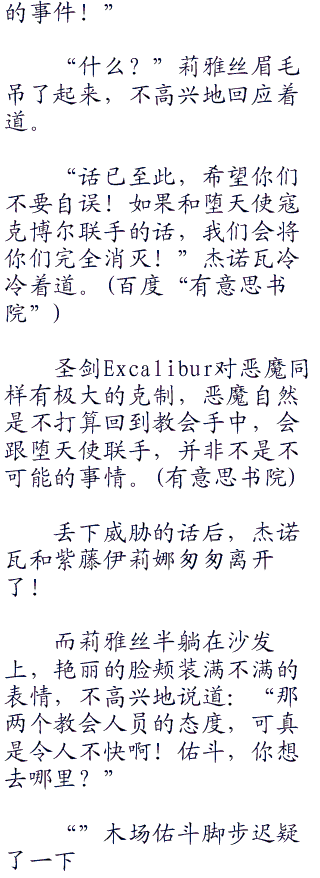 的事件！”
“什么？”莉雅丝眉毛
吊了起来，不高兴地回应着
道。
“话已至此，希望你们
不要自误！如果和堕天使寇
克博尔联手的话，我们会将
你们完全消灭！”杰诺瓦冷
冷着道。(百度“有意思书
院”)
圣剑Excalibur对恶魔同
样有极大的克制，恶魔自然
是不打算回到教会手中，会
跟堕天使联手，并非不是不
可能的事情。(有意思书院)
丢下威胁的话后，杰诺
瓦和紫藤伊莉娜匆匆离开
了！
而莉雅丝半躺在沙发
上，艳丽的脸颊装满不满的
表情，不高兴地说道：“那
两个教会人员的态度，可真
是令人不快啊！佑斗，你想
去哪里？”
“”木场佑斗脚步迟疑
了一下